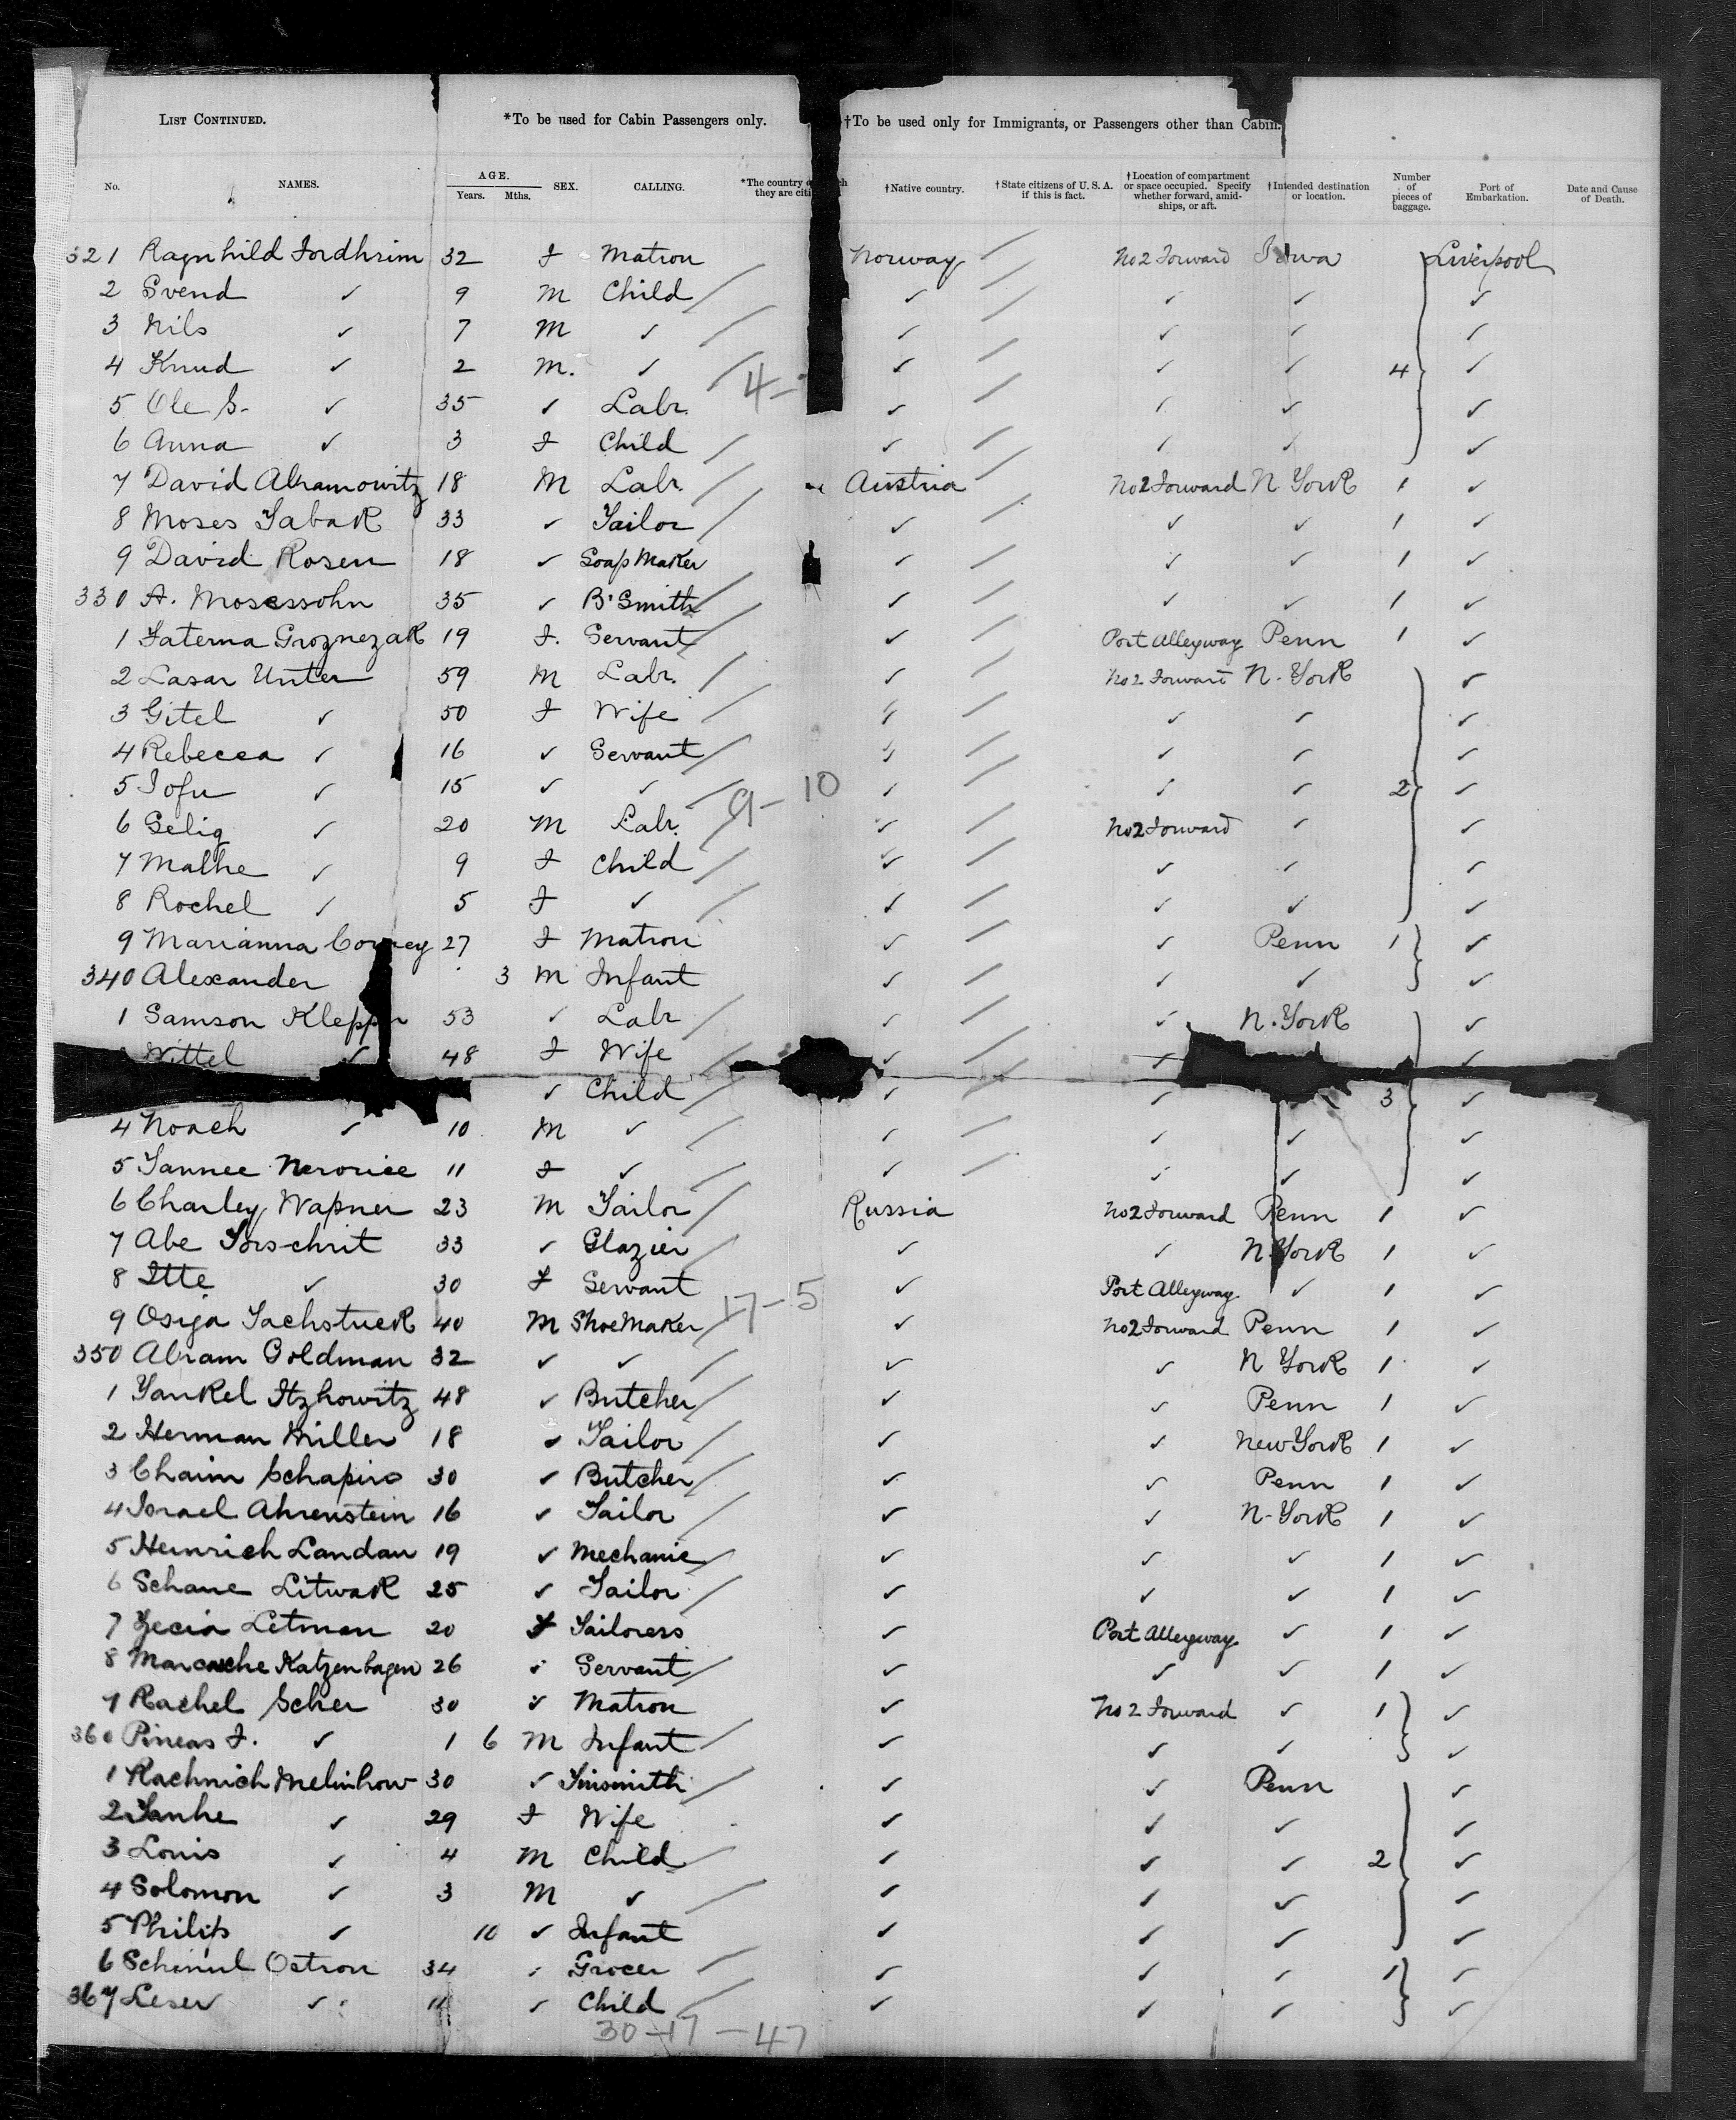 LIST CONTINUED. *To be used for Cabin Passengers only. †To be used only for Immigrants, or Passengers other than Cabin.
No. NAMES. AGE. Years. Mths. SEX. CALLING. *The country they are citi †Native country. †State citizens of U. S. A. if this is fact. †Location of compartment or space occupied. Specify whether forward, amidships, or aft. †Intended destination or location. Number of pieces of baggage. Port of Embarkation. Date and Cause of Death.
321 Ragnhild Fordhrim 32 F Matron Norway No 2 Forward Iowa Liverpool
2 Svend ✓ 9 M Child ✓ ✓ ✓ ✓
3 Nils ✓ 7 M ✓ ✓ ✓ ✓ ✓
4 Knud ✓ 2 M. ✓ ✓ ✓ ✓ 4 ✓
5 Ole S. ✓ 35 ✓ Labr. ✓ ✓ ✓ ✓
6 Anna ✓ 3 F Child ✓ ✓ ✓ ✓
7 David Abramowitz 18 M Labr. Austria No 2 Forward N York 1 ✓
8 Moses Tabak 33 ✓ Tailor ✓ ✓ ✓ 1 ✓
9 David Rosen 18 ✓ Soap Maker ✓ ✓ ✓ 1 ✓
330 A. Mosessohn 35 ✓ B'Smith ✓ ✓ ✓ 1 ✓
1 Taterna Groznezak 19 F. Servant ✓ Port Alleyway Penn 1 ✓
2 Lasar Unter 59 M Labr. ✓ No 2 Forward N. York ✓
3 Gitel ✓ 50 F Wife ✓ ✓ ✓ ✓
4 Rebecca ✓ 16 ✓ Servant ✓ ✓ ✓ ✓
5 Tofu ✓ 15 ✓ ✓ 9-10 ✓ ✓ ✓ 2 ✓
6 Selig ✓ 20 M Labr. ✓ No 2 Forward ✓ ✓
7 Malhe ✓ 9 F Child ✓ ✓ ✓ ✓
8 Rochel ✓ 5 F ✓ ✓ ✓ ✓ ✓
9 Marianna 27 F Matron ✓ ✓ Penn 1 ✓
340 Alexander 3 M Infant ✓ ✓ ✓ ✓
1 Samson Klepper 53 ✓ Labr ✓ ✓ N. York ✓
Wittel ✓ 48 F Wife ✓ ✓ ✓
✓ Child ✓ ✓ 3 ✓
4 Noach ✓ 10 M ✓ ✓ ✓ ✓ ✓
5 Tannee Nerouice 11 F ✓ ✓ ✓ ✓ ✓
6 Charley Wapner 23 M Tailor Russia No 2 Forward Penn 1 ✓
7 Abe Tors-chrit 33 ✓ Glazier ✓ ✓ N. York 1 ✓
8 Itte ✓ 30 F Servant 17-5 ✓ Port Alleyway ✓ 1 ✓
9 Osiga Tachstuck 40 M ShoeMaker ✓ No 2 Forward Penn 1 ✓
350 Abram Goldman 32 ✓ ✓ ✓ ✓ N York 1 ✓
1 Yankel Itzhowitz 48 ✓ Butcher ✓ ✓ Penn 1 ✓
2 Herman Miller 18 ✓ Tailor ✓ ✓ New York 1 ✓
3 Chaim Schapiro 30 ✓ Butcher ✓ ✓ Penn 1 ✓
4 Israel Ahrenstein 16 ✓ Tailor ✓ ✓ N-York 1 ✓
5 Heinrich Landau 19 ✓ Mechanic ✓ ✓ ✓ 1 ✓
6 Schane Litwak 25 ✓ Tailor ✓ ✓ ✓ 1 ✓
7 Zecia Letman 20 F Tailoress ✓ Port Alleyway ✓ 1 ✓
8 Marcasche Katzenbagen 26 ✓ Servant ✓ ✓ ✓ 1 ✓
9 Rachel Scher 30 ✓ Matron ✓ No 2 Forward ✓ 1 ✓
360 Pineas F. ✓ 1 6 M Infant ✓ ✓ ✓ ✓
1 Rachmich Melinhow 30 ✓ Tinsmith ✓ ✓ Penn ✓
2 Tanhe ✓ 29 F Wife ✓ ✓ ✓ ✓
3 Louis ✓ 4 M Child ✓ ✓ ✓ 2 ✓
4 Solomon ✓ 3 M ✓ ✓ ✓ ✓ ✓
5 Philip ✓ 10 ✓ Infant ✓ ✓ ✓ ✓
6 Schimul Ostron 34 ✓ Grocer ✓ ✓ ✓ 1 ✓
367 Leser ✓ 11 ✓ Child ✓ ✓ ✓ ✓
30-17-47